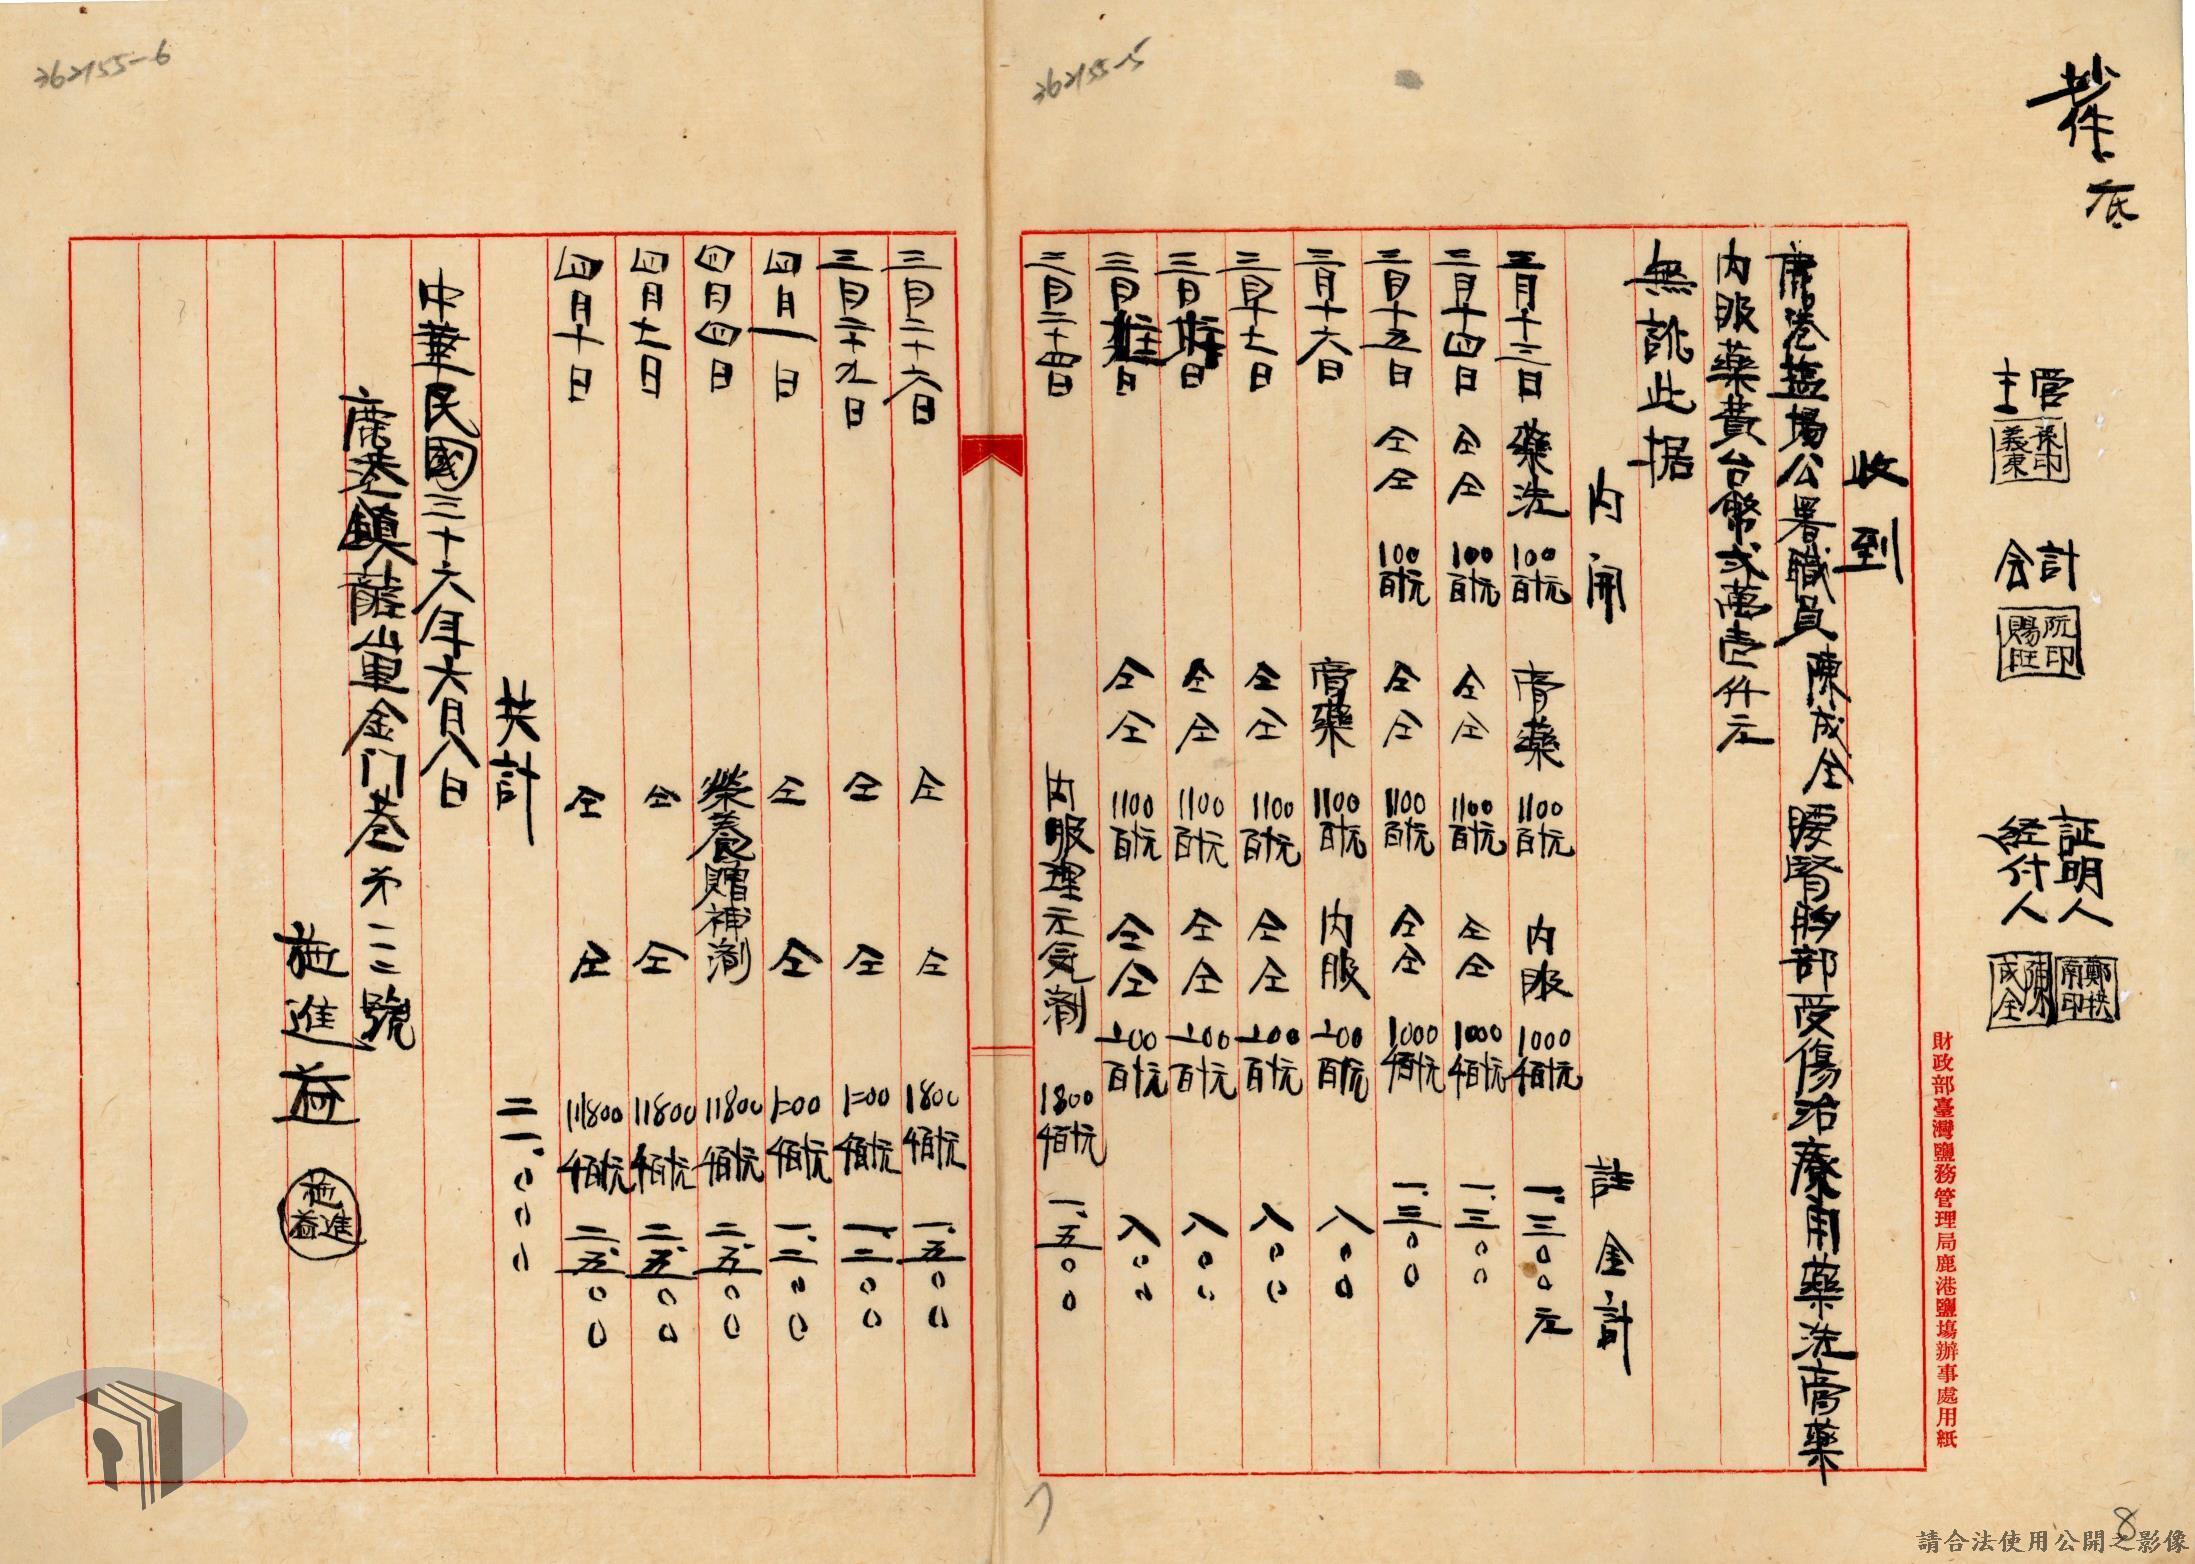 抄件
底
主管
孫印義東
会計
阮印賜旺
証明人
経付人
陳成全
財政部臺灣鹽務管理局鹿港鹽場辦事處用紙
收到
鹿港塩場公署職員陳成全腰腎胸部受傷治療用藥洗膏藥
內服藥費台幣弍萬壱仟元
無訛此据
內開 註金計
三月十三日 藥洗 100百十元 膏藥 1100百十元 內服 1000仟百十元 一.三〇〇元
三月十四日 仝仝 100百十元 仝仝 1100百十元 仝仝 1000仟百十元 一.三〇〇
三月十五日 仝仝 100百十元 仝仝 1100百十元 仝仝 1000仟百十元 一.三〇〇
三月十六日 膏藥 1100百十元 內服 〦00百十元 八〇〇
三月十七日 仝仝 1100百十元 仝仝 〦00百十元 八〇〇
三月 日 仝仝 1100百十元 仝仝 〦00百十元 八〇〇
三月 日 仝仝 1100百十元 仝仝 〦00百十元 八〇〇
三月二十四日 內服理元気劑 1800仟百十元 一.五〇〇
三月二十六日 仝 仝 1800仟百十元 一.五〇〇
三月二十九日 仝 仝 1二00仟百十元 一.二〇〇
四月一日 仝 仝 1二00仟百十元 一.二〇〇
四月四日 榮養贈補劑 11800仟百十元 二.五〇〇
四月七日 仝 仝 11800仟百十元 二.五〇〇
四月十日 仝 仝 11800仟百十元 二.五〇〇
共計 二一.〇〇〇
中華民國三十六年六月八日
鹿港鎮龍山里金门巷第一二二號
施進益
施進益
362155-5
362155-6
7
8
請合法使用公開之影像